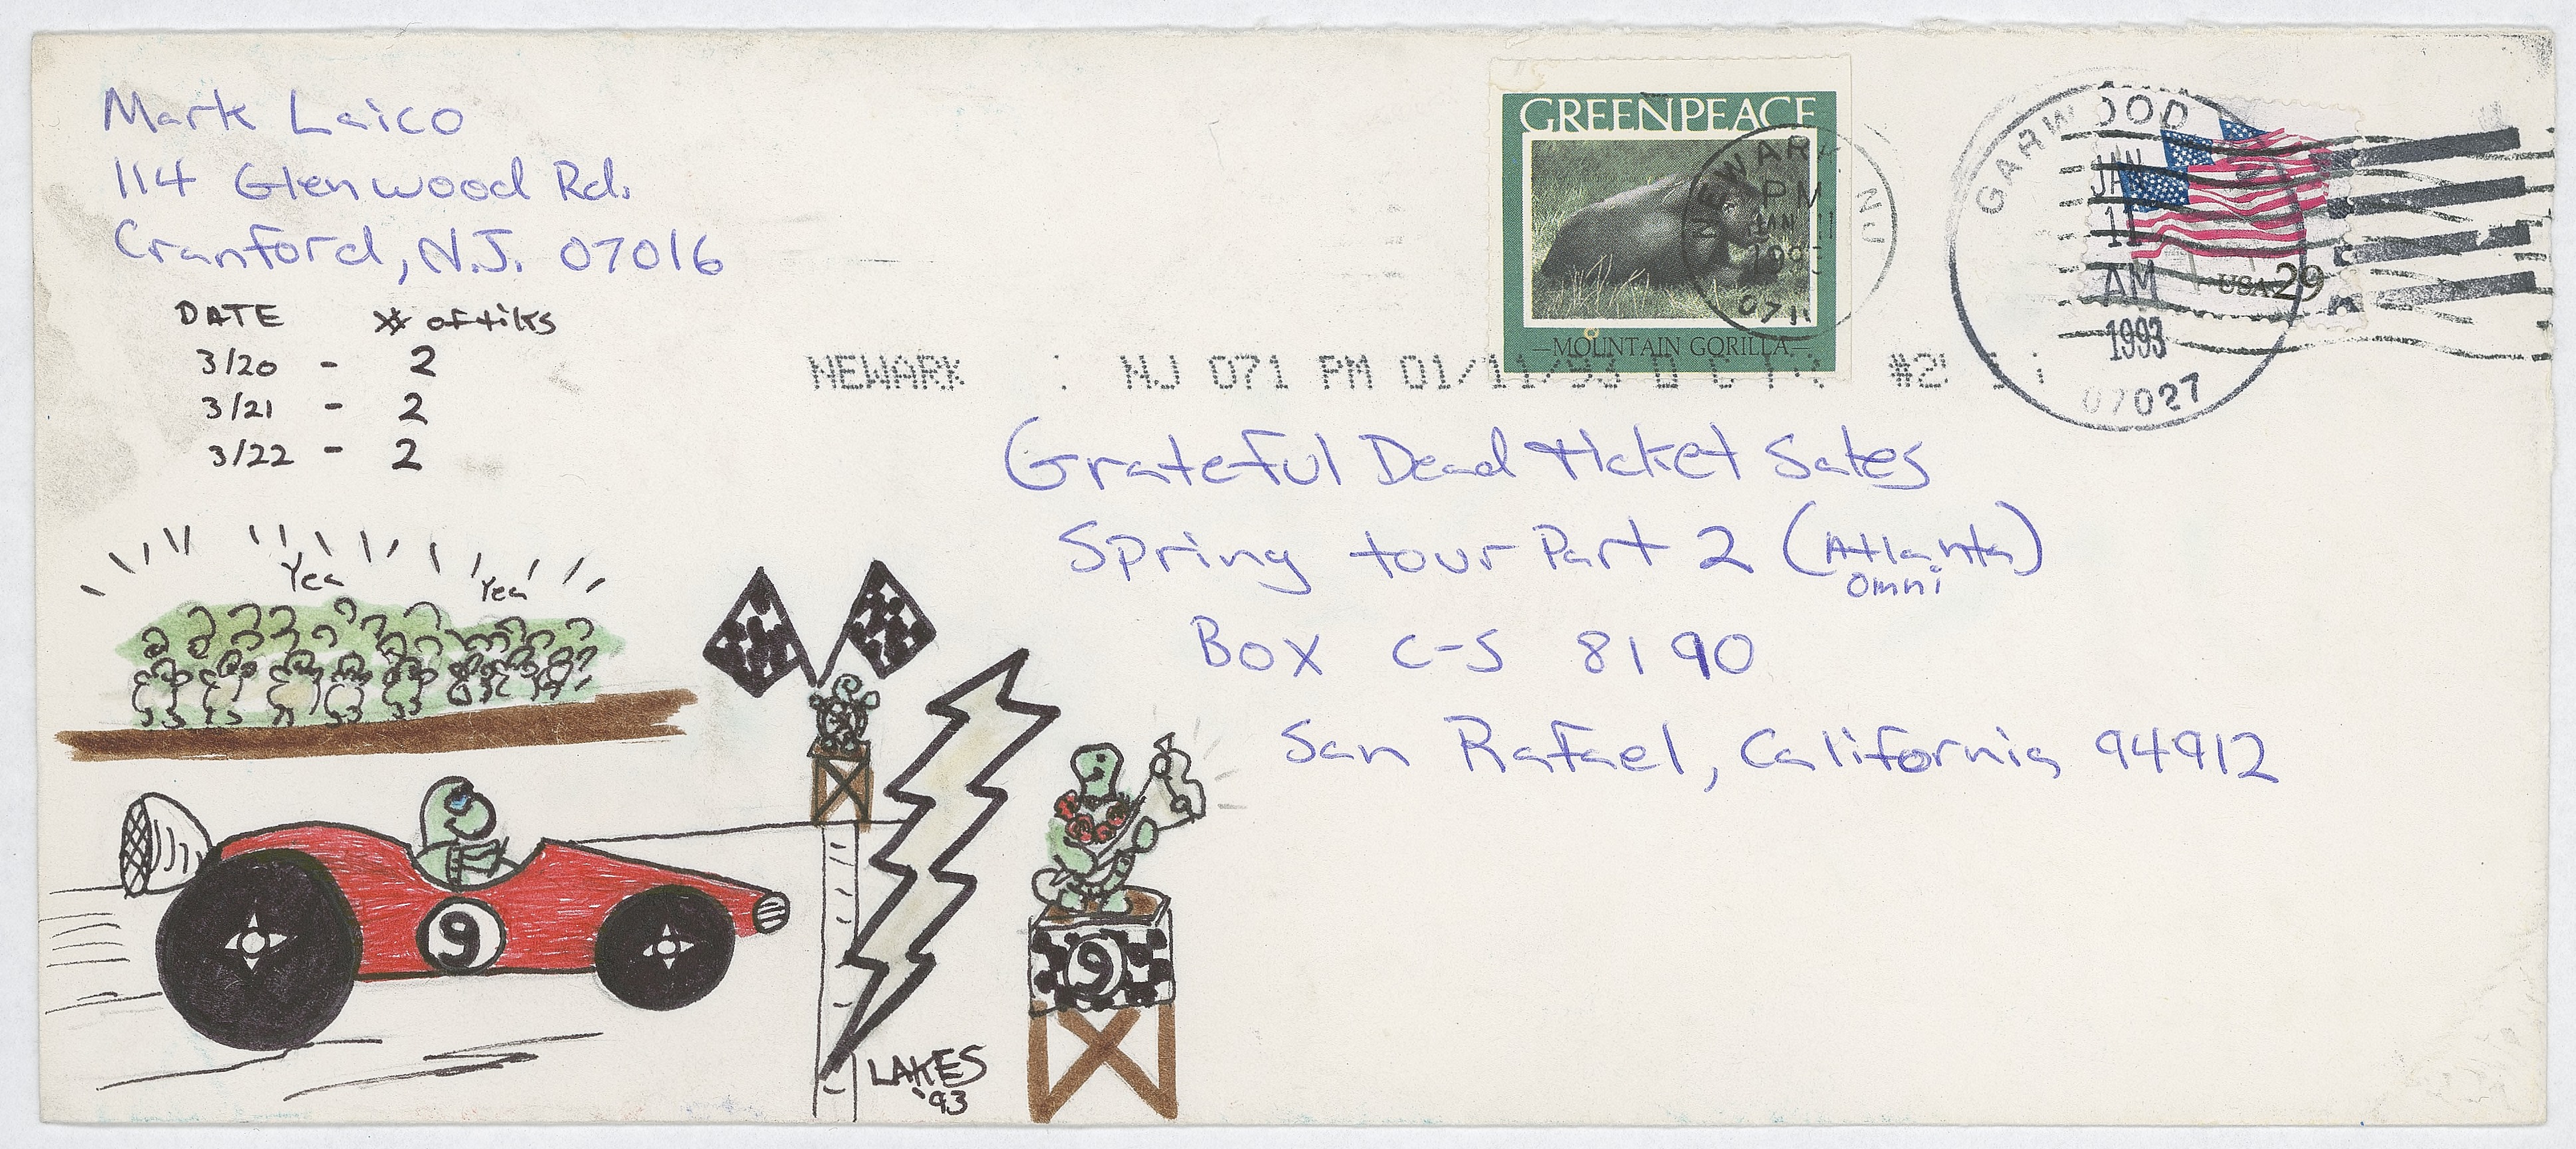 Mark Laico
114 Glenwood Rd.
Cranford, N.J. 07016
DATE # of tikts
3/20 - 2
3/21 - 2
3/22 - 2
GREENPEACE
MOUNTAIN GORILLA
NEWARK NJ
PM
JAN 11
GARWOOD
JAN
11
AM
1993
07027
USA 29
NEWARK : NJ 071 PM 01/11/93
Grateful Dead Ticket Sales
Spring tour Part 2 (Atlanta)
Omni
Box C-S 8190
San Rafael, California 94912
Yea Yea
9
9
LAKES
'93